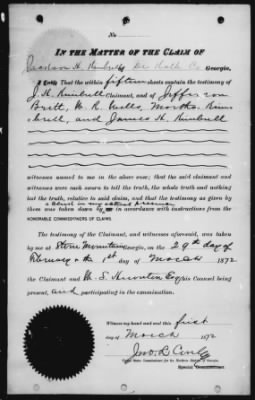 No
IN THE MATTER OF THE CLAIM OF
Jackson H. Kimbrell De Kalb Co Georgia,
I Certify That the within fifteen sheets contain the testimony of
J. H. Kimbrell Claimant, and of Jefferson
Britt, W. R. Wells, Martha Kim-
brell, and James H. Kimbrell
witnesses named to me in the above case; that the said claimant and
witnesses were each sworn to tell the truth, the whole truth and nothing
but the truth, relative to said claim, and that the testimony as given by
them was taken down by in accordance with instructions from the
HONORABLE COMMISSIONERS OF CLAIMS.
The testimony of the Claimant, and witnesses aforesaid, was taken
by me at Stone Mountain Georgia, on the 29th day of
February & the 1st day of March 1872
the Claimant and W. S. Esq his Counsel being
present, and participating in the examination.
Witness my hand and seal this first
day of March 1872
Jno. B.
Special Commissioner.